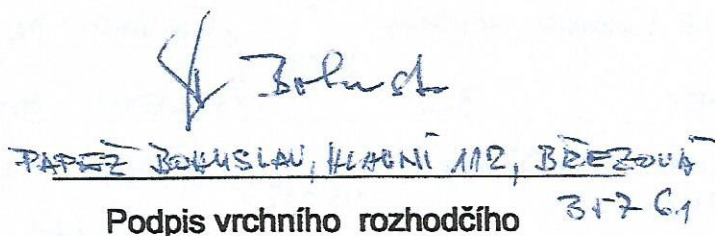 PAPEŽ BOHUSLAV, HLAVNÍ 112, BŘEZOVÁ
357 61
Podpis vrchního rozhodčího